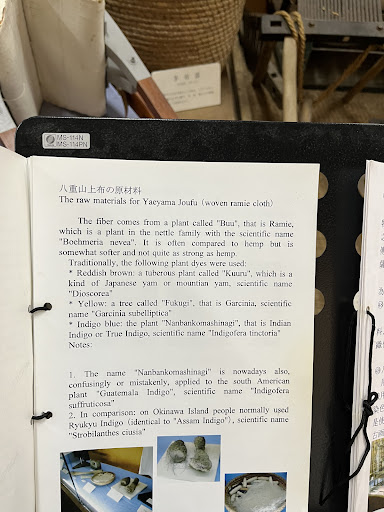 MS-114N
MS-114PN
八重山上布の原材料
The raw materials for Yaeyama Joufu (woven ramie cloth)
The fiber comes from a plant called "Buu", that is Ramie,
which is a plant in the nettle family with the scientific name
"Boehmeria nevea". It is often compared to hemp but is
somewhat softer and not quite as strong as hemp.
Traditionally, the following plant dyes were used:
* Reddish brown: a tuberous plant called "Kuuru", which is a
kind of Japanese yam or mountian yam, scientific name
"Dioscorea"
* Yellow: a tree called "Fukugi", that is Garcinia, scientific
name "Garcinia subelliptica"
* Indigo blue: the plant "Nanbankomashinagi", that is Indian
Indigo or True Indigo, scientific name "Indigofera tinctoria"
Notes:
1. The name "Nanbankomashinagi" is nowadays also,
confusingly or mistakenly, applied to the south American
plant "Guatemala Indigo", scientific name "Indigofera
suffruticosa"
2. In comparison: on Okinawa Island people normally used
Ryukyu Indigo (identical to "Assam Indigo"), scientific name
"Strobilanthes ciusia"